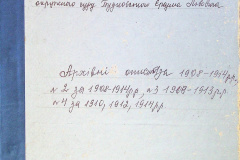 окружного суду Тузновського Єразма Львовича
Архівні описи за 1908-1914рр,
№2 за 1908-1914рр, №3 1909-1913р.р.
№4 за 1910, 1912, 1914рр.